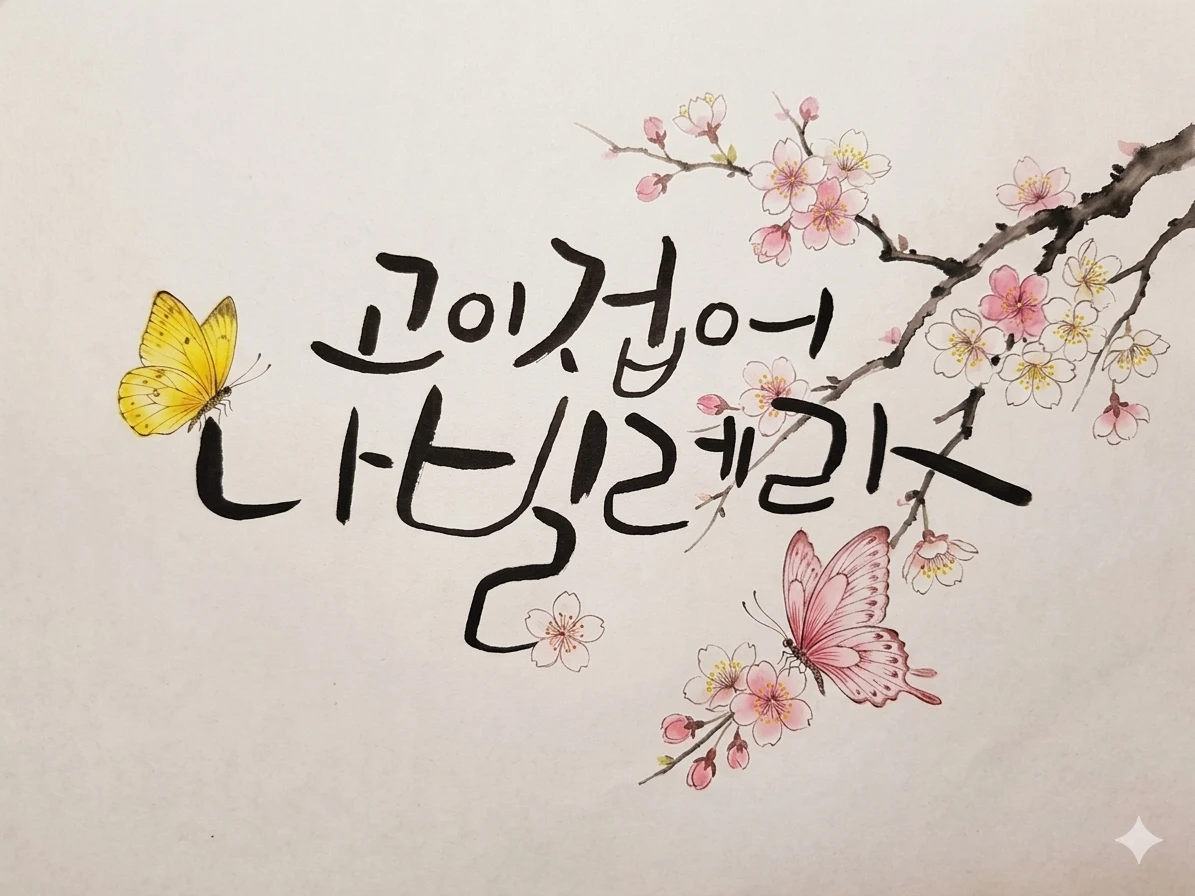 고이접어
나빌레라